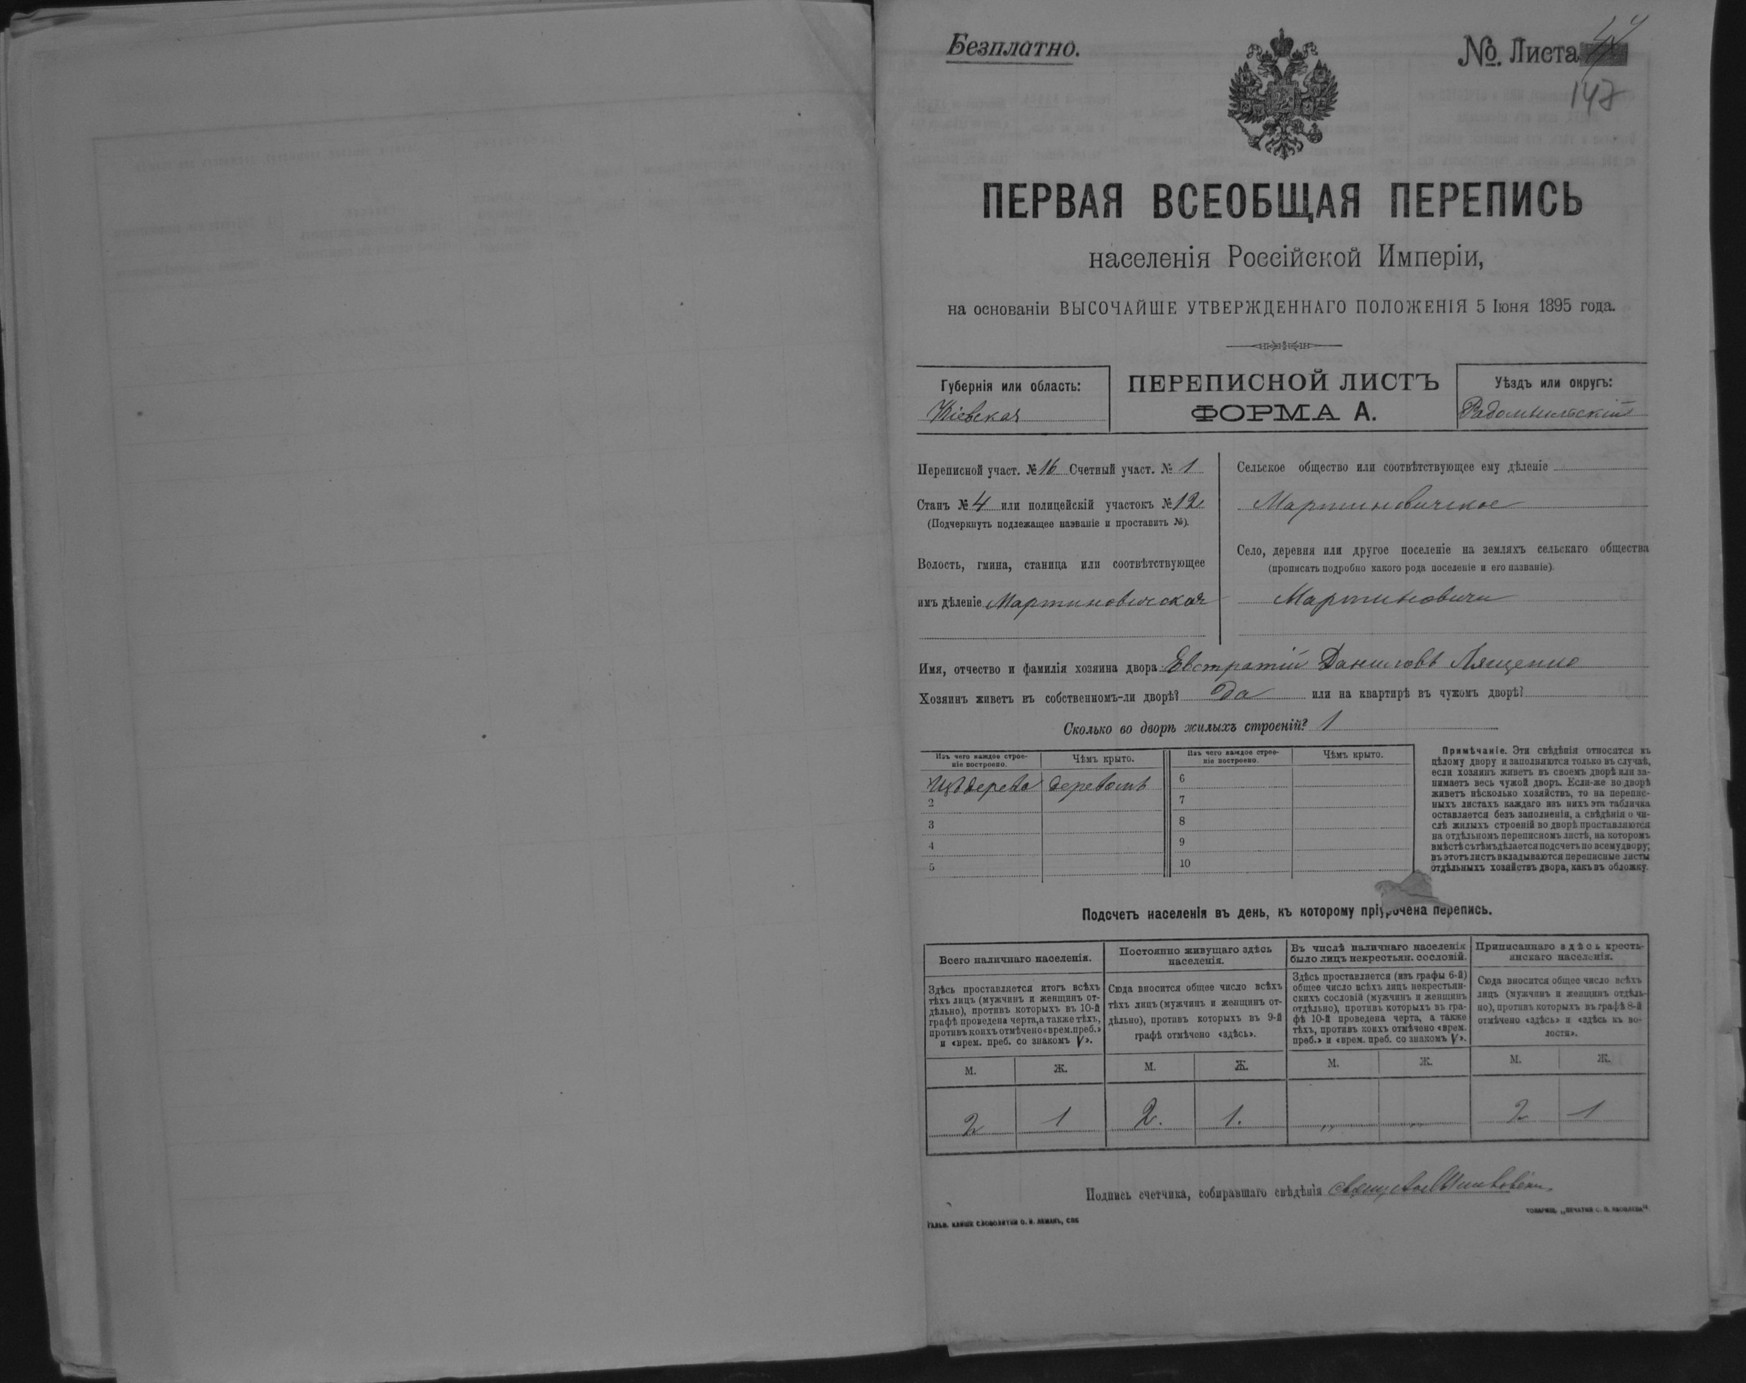 Безплатно.
№. Листа
147
ПЕРВАЯ ВСЕОБЩАЯ ПЕРЕПИСЬ
населенія Россійской Имперіи,
на основаніи ВЫСОЧАЙШЕ УТВЕРЖДЕННАГО ПОЛОЖЕНІЯ 5 Іюня 1895 года.
Губернія или область:
Кіевская
ПЕРЕПИСНОЙ ЛИСТЪ
ФОРМА А.
Уѣздъ или округъ:
Радомысльскій
Переписной участ. № 16 Счетный участ. № 1
Станъ № 4 или полицейскій участокъ № 12
(Подчеркнуть подлежащее названіе и проставить №).
Волость, гмина, станица или соотвѣтствующее
имъ дѣленіе Мартиновичская
Сельское общество или соотвѣтствующее ему дѣленіе
Мартиновичское
Село, деревня или другое поселеніе на земляхъ сельскаго общества
(прописать подробно какого рода поселеніе и его названіе).
Мартиновичи
Имя, отчество и фамилія хозяина двора Евстратій Даниловъ Лященко
Хозяинъ живетъ въ собственномъ-ли дворѣ? Да или на квартирѣ въ чужомъ дворѣ?
Сколько во дворѣ жилыхъ строеній? 1
Изъ чего каждое строе-
ніе построено.
Чѣмъ крыто.
Изъ чего каждое строе-
ніе построено.
Чѣмъ крыто.
Изъ дерева деревомъ
2
3
4
5
6
7
8
9
10
Примѣчаніе. Эти свѣдѣнія относятся къ
цѣлому двору и заполняются только въ случаѣ,
если хозяинъ живетъ въ своемъ дворѣ или за-
нимаетъ весь чужой дворъ. Если-же во дворѣ
живетъ нѣсколько хозяйствъ, то на перепис-
ныхъ листахъ каждаго изъ нихъ эта табличка
оставляется безъ заполненія, а свѣдѣнія о чи-
слѣ жилыхъ строеній во дворѣ проставляются
на отдѣльномъ переписномъ листѣ, на которомъ
вмѣстѣ съ тѣмъ дѣлается подсчетъ по всему двору;
въ этотъ листъ вкладываются переписные листы
отдѣльныхъ хозяйствъ двора, какъ въ обложку.
Подсчетъ населенія въ день, къ которому пріурочена перепись.
Всего наличнаго населенія.
Постоянно живущаго здѣсь
населенія.
Въ числѣ наличнаго населенія
было лицъ некрестьян. сословій.
Приписаннаго здѣсь кресть-
янскаго населенія.
Здѣсь проставляется итогъ всѣхъ
тѣхъ лицъ (мужчинъ и женщинъ от-
дѣльно), противъ которыхъ въ 10-й
графѣ проведена черта, а также тѣхъ,
противъ коихъ отмѣчено «врем. преб.»
и «врем. преб. со знакомъ V».
Сюда вносится общее число всѣхъ
тѣхъ лицъ (мужчинъ и женщинъ от-
дѣльно), противъ которыхъ въ 9-й
графѣ отмѣчено «здѣсь».
Здѣсь проставляется (изъ графы 6-й)
общее число всѣхъ лицъ некрестьян-
скихъ сословій (мужчинъ и женщинъ
отдѣльно), противъ которыхъ въ гра-
фѣ 10-й проведена черта, а также
тѣхъ, противъ коихъ отмѣчено «врем.
преб.» и «врем. преб. со знакомъ V».
Сюда вносится общее число всѣхъ
лицъ (мужчинъ и женщинъ отдѣль-
но), противъ которыхъ въ графѣ 8-й
отмѣчено «здѣсь» и «здѣсь къ во-
лости».
М. Ж. М. Ж. М. Ж. М. Ж.
2 1 2. 1. „ „ 2 1
Подпись счетчика, собиравшаго свѣдѣнія